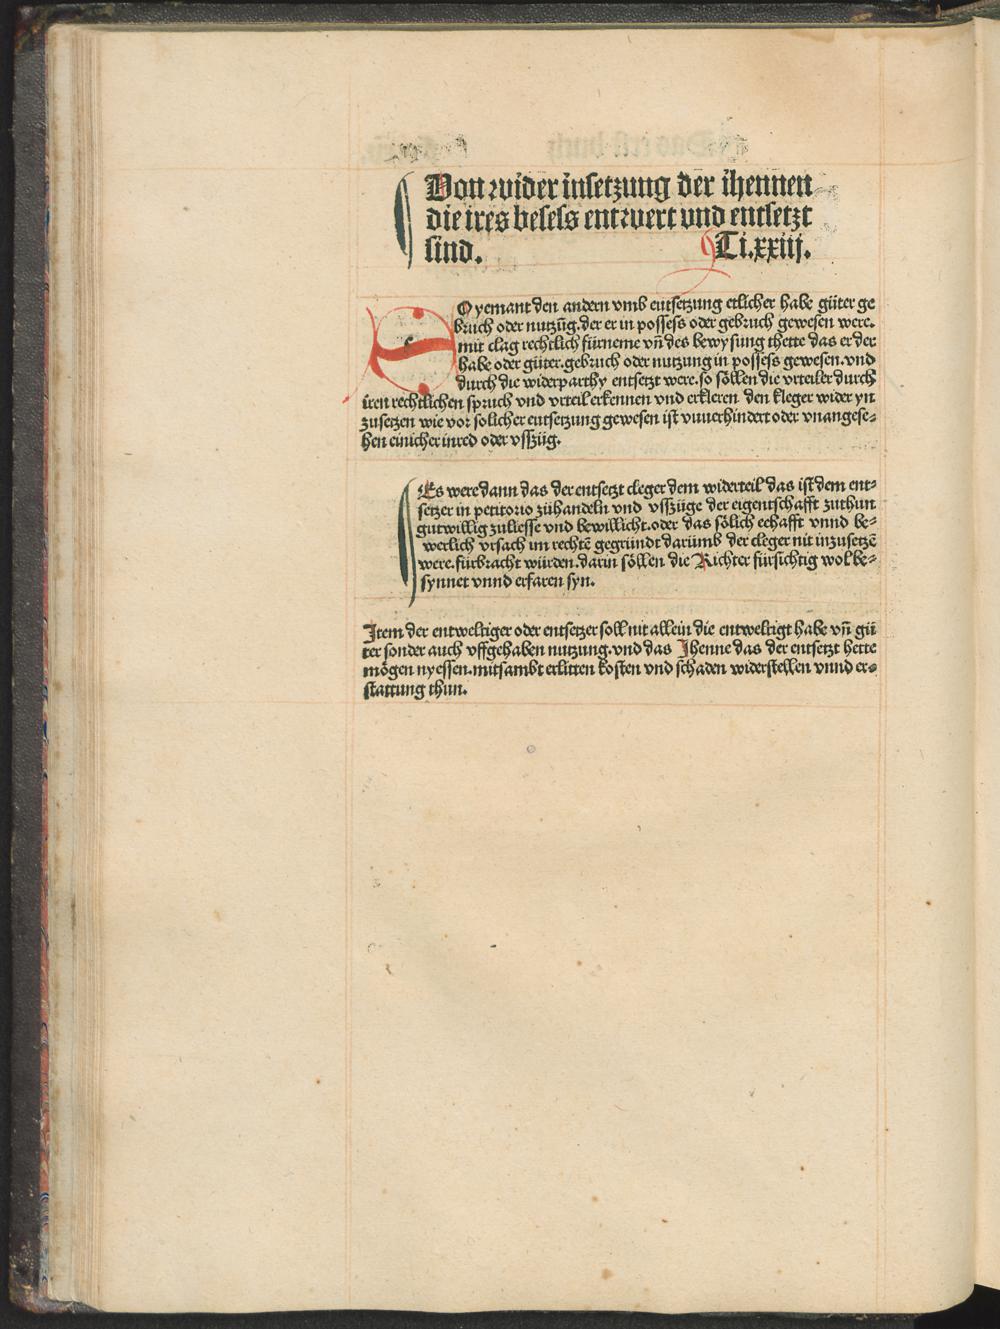 Von wider insetzung der ihennen
die ires besess entwert vnd entsetzt
sind. Ti.xxiij.
SO yemant den andern vmb entsetzung etlicher habe güter ge
bruch oder nutzūg.der er in possess oder gebruch gewesen were.
mit clag rechtlich fürneme vn̄ des bewysung thette das er der
habe oder güter.gebruch oder nutzung in possess gewesen.vnd
durch die widerparthy entsetzt were.so söllen die vrteiler durch
iren rechtlichen spruch vnd vrteil erkennen vnd erkleren den kleger wider yn
zusetzen wie vor solicher entsetzung gewesen ist vnuerhindert oder vnangese⸗
hen einicher inred oder vsszüg.
Es were dann das der entsetzt cleger dem widerteil das ist dem ent⸗
setzer in petitorio zühandeln vnd vsszüge der eigentschafft zuthun
gutwillig zuliesse vnd bewillicht.oder das sölich eehafft vnnd be⸗
werlich vrsach im rechtē gegründt darūmb der cleger nit inzusetzē
were.fürbracht würden.darin söllen die Richter fürsichtig wolbe⸗
synnet vnnd erfaren syn.
Item der entweltiger oder entsetzer soll nit allein die entweltigt habe vn̄ gü
ter sonder auch vffgehaben nutzung.vnd das Jhenne das der entsetzt hette
mögen nyessen.mitsambt erlitten kosten vnd schaden widerstellen vnnd er⸗
stattung thun.